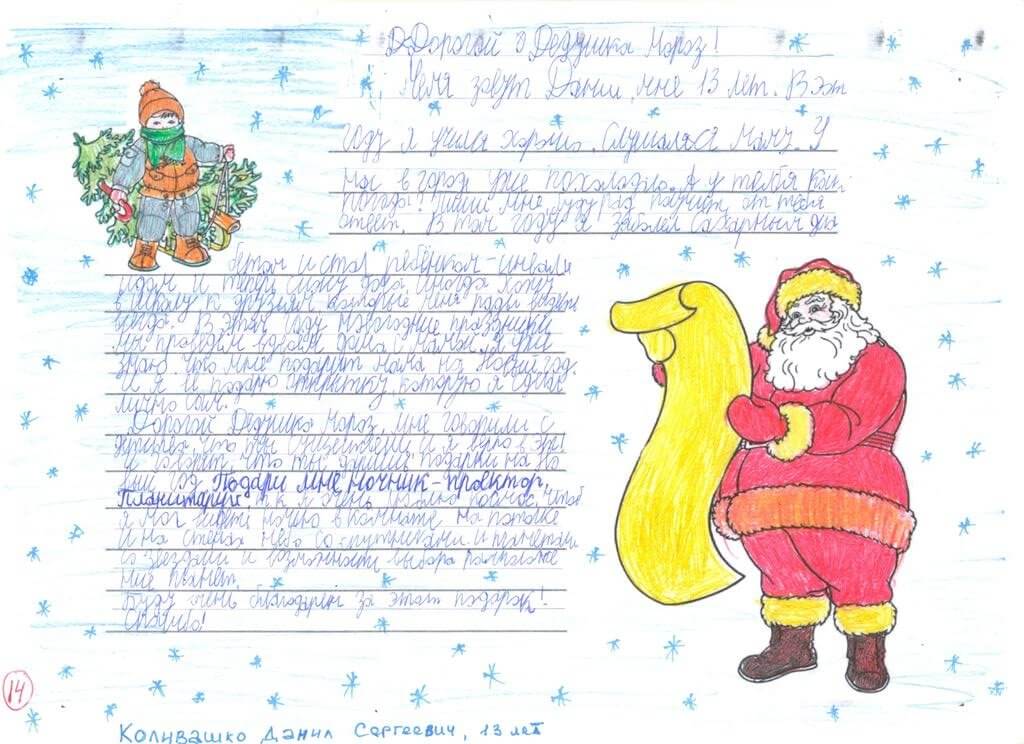 Дорогой Дедушка Мороз!
Меня зовут Данил, мне 13 лет. В эт
году я учился хорошо. Слушался маму. У
нас в городе уже похолодало. А у тебя как
погода? Пиши мне буду рад получить от тебя
ответ. В том году я заболел сахарным диа
бетом и стал ребёнком-инвали
дом и теперь сижу дома. Иногда хожу
в школу к друзьям которые меня рады видеть
всегда. В этом году новогодние праздники
мы проведём вдвоём дома с мамой. Я уже
знаю что мне подарит мама на Новый год.
И я ей подарю открытку которую я сделаю
лично сам.
Дорогой Дедушка Мороз, мне говорили с
детства, что ты и я верю в это
и говорят, что ты даришь подарки на Но
вый год. Подари мне ночник-проектор,
Планитарий, т.к. я очень люблю космос, чтоб
я мог видеть ночью в комнате на потолке
и на стенах небо со спутниками и планетами
со звездами и возможность выбора расположе
ние планет.
Буду очень благодарен за этот подарок!
Спасибо!
14
Коливашко Данил Сергеевич, 13 лет